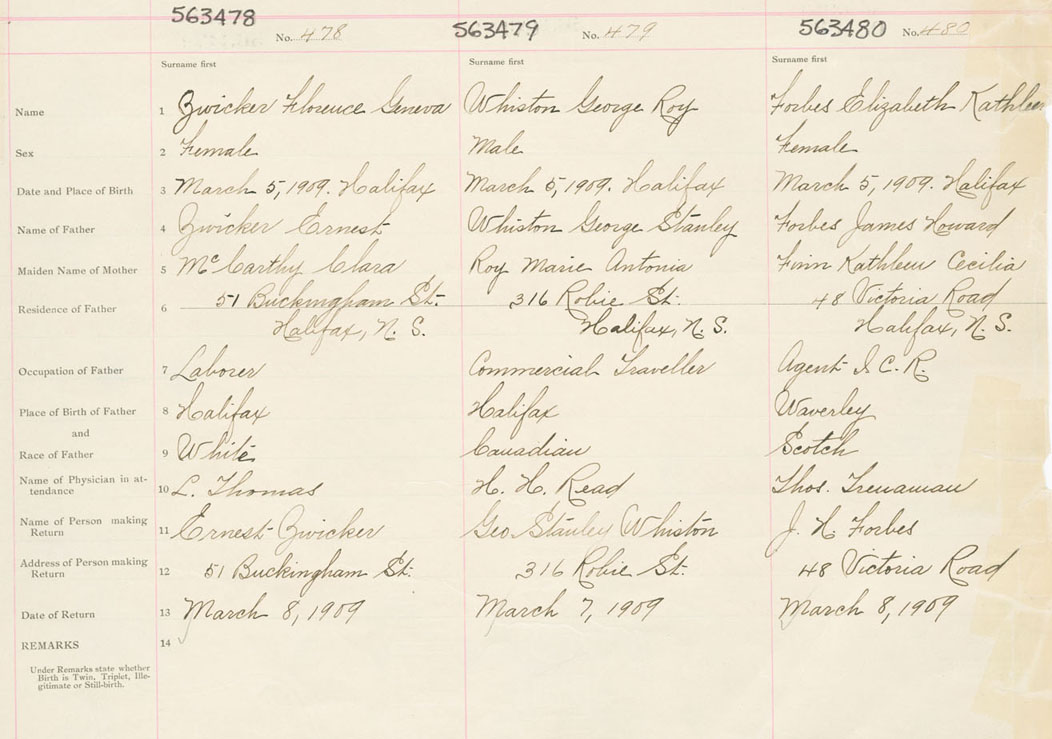 563478 No. 478 563479 No. 479 563480 No. 480
Surname first Surname first Surname first
Name 1 Zwicker Florence Geneva Whiston George Roy Forbes Elizabeth Kathleen
Sex 2 Female Male Female
Date and Place of Birth 3 March 5, 1909. Halifax March 5, 1909. Halifax March 5, 1909. Halifax
Name of Father 4 Zwicker Ernest Whiston George Stanley Forbes James Howard
Maiden Name of Mother 5 McCarthy Clara Roy Marie Antonia Finn Kathleen Cecilia
Residence of Father 6 51 Buckingham St. 316 Robie St. 48 Victoria Road
Halifax, N. S. Halifax, N. S. Halifax, N. S.
Occupation of Father 7 Laborer Commercial Traveller Agent I. C. R.
Place of Birth of Father 8 Halifax Halifax Waverley
and
Race of Father 9 White Canadian Scotch
Name of Physician in at-
tendance 10 L. Thomas H. H. Read Thos. Trenaman
Name of Person making
Return 11 Ernest Zwicker Geo Stanley Whiston J. H. Forbes
Address of Person making
Return 12 51 Buckingham St. 316 Robie St. 48 Victoria Road
Date of Return 13 March 8, 1909 March 7, 1909 March 8, 1909
REMARKS 14
Under Remarks state whether
Birth is Twin, Triplet, Ille-
gitimate or Still-birth.